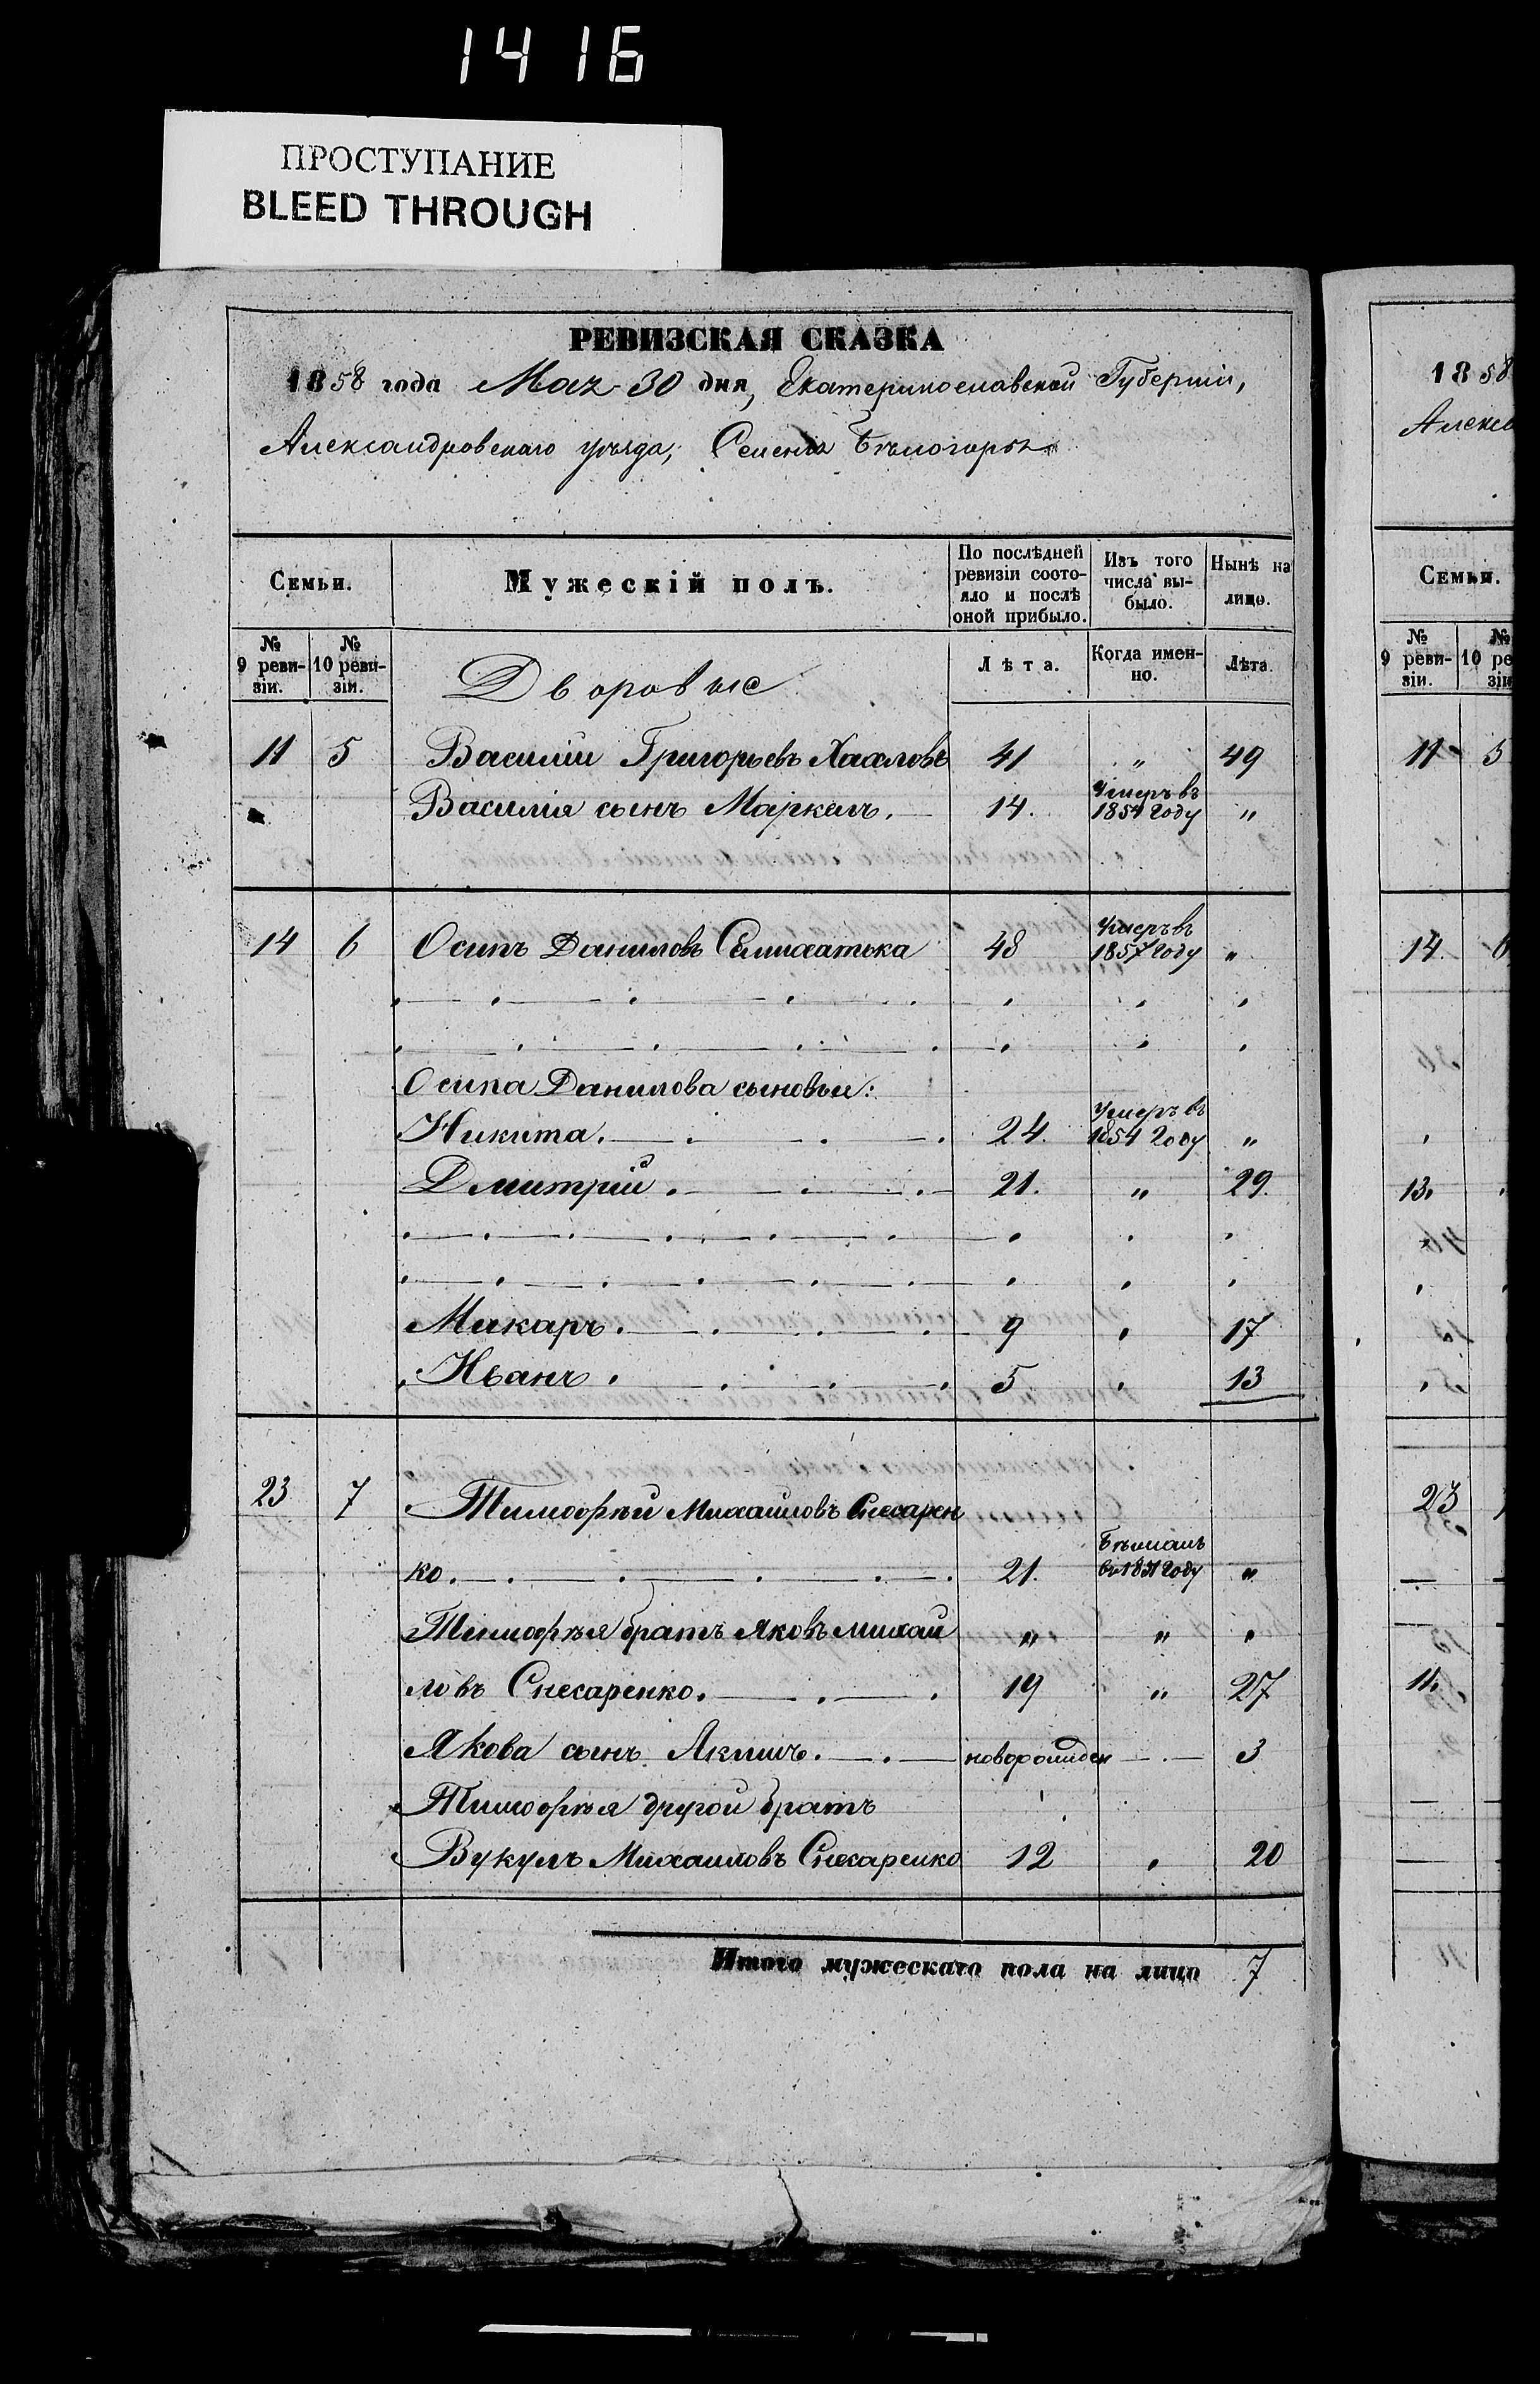 1416
ПРОСТУПАНИЕ
BLEED THROUGH
РЕВИЗСКАЯ СКАЗКА
1858 года Мая 30 дня, Екатеринославской Губерніи,
Александровскаго уѣзда, Села Бѣлогорья
Семьи. Мужескій полъ. По послѣдней ревизіи состояло и послѣ оной прибыло. Изъ того числа выбыло. Ныне на лицо.
№ 9 ревизіи. № 10 ревизіи. Дворовые Лѣта. Когда именно. Лѣта.
11 5 Василій Григорьевъ 41 " 49
Василія сынъ Маркелъ. 14. Умеръ въ 1854 году "
14 6 Осипъ Даниловъ 48 Умеръ въ 1857 году "
Осипа Данилова сыновья:
Никита. 24. Умеръ въ 1854 году "
Дмитрій. 21. " 29.
Макаръ. 9 17
Иванъ. 5 13
23 7 Тимофѣй Михайловъ Снесарен
ко. 21. Бѣжалъ въ 1851 году "
Тимофѣя братъ Яковъ Михай " "
ловъ Снесаренко. 19 " 27
Якова сынъ Акимъ. новорожден 3
Тимофѣя другой братъ
Вукулъ Михаиловъ Снесаренко 12 20
Итого мужескаго пола на лицо 7
1858
Алекса
Семьи.
№ 9 ревизіи. № 10 ре зіи
11 5
14. 6
13.
23
11.